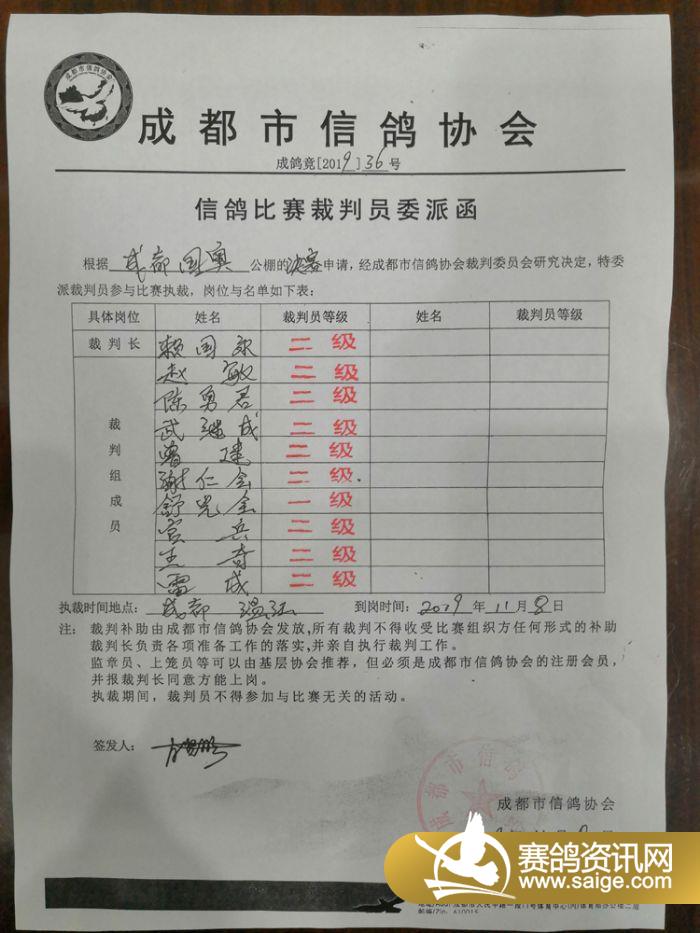 成都市信鸽协会
成都市信鸽协会
成鸽竞[2019]36号
信鸽比赛裁判员委派函
根据 成都国奥 公棚的决赛申请，经成都市信鸽协会裁判委员会研究决定，特委
派裁判员参与比赛执裁，岗位与名单如下表：
具体岗位 姓名 裁判员等级 姓名 裁判员等级
裁判长 赖国 二级
赵敏 二级
陈勇君 二级
武继成 二级
曾建 二级
谢仁全 二级
舒光全 一级
宫兵 二级
王奇 二级
雷成 二级
裁判组成员
执裁时间地点： 成都 温江 到岗时间：2019年11月8日
注： 裁判补助由成都市信鸽协会发放，所有裁判不得收受比赛组织方任何形式的补助
裁判长负责各项准备工作的落实，并亲自执行裁判工作。
监章员、上笼员等可以由基层协会推荐，但必须是成都市信鸽协会的注册会员，
并报裁判长同意方能上岗。
执裁期间，裁判员不得参加与比赛无关的活动。
签发人：
成都市信鸽
成都市信鸽协会
赛鸽资讯网
www.saige.com
邮编/Zip: 610015